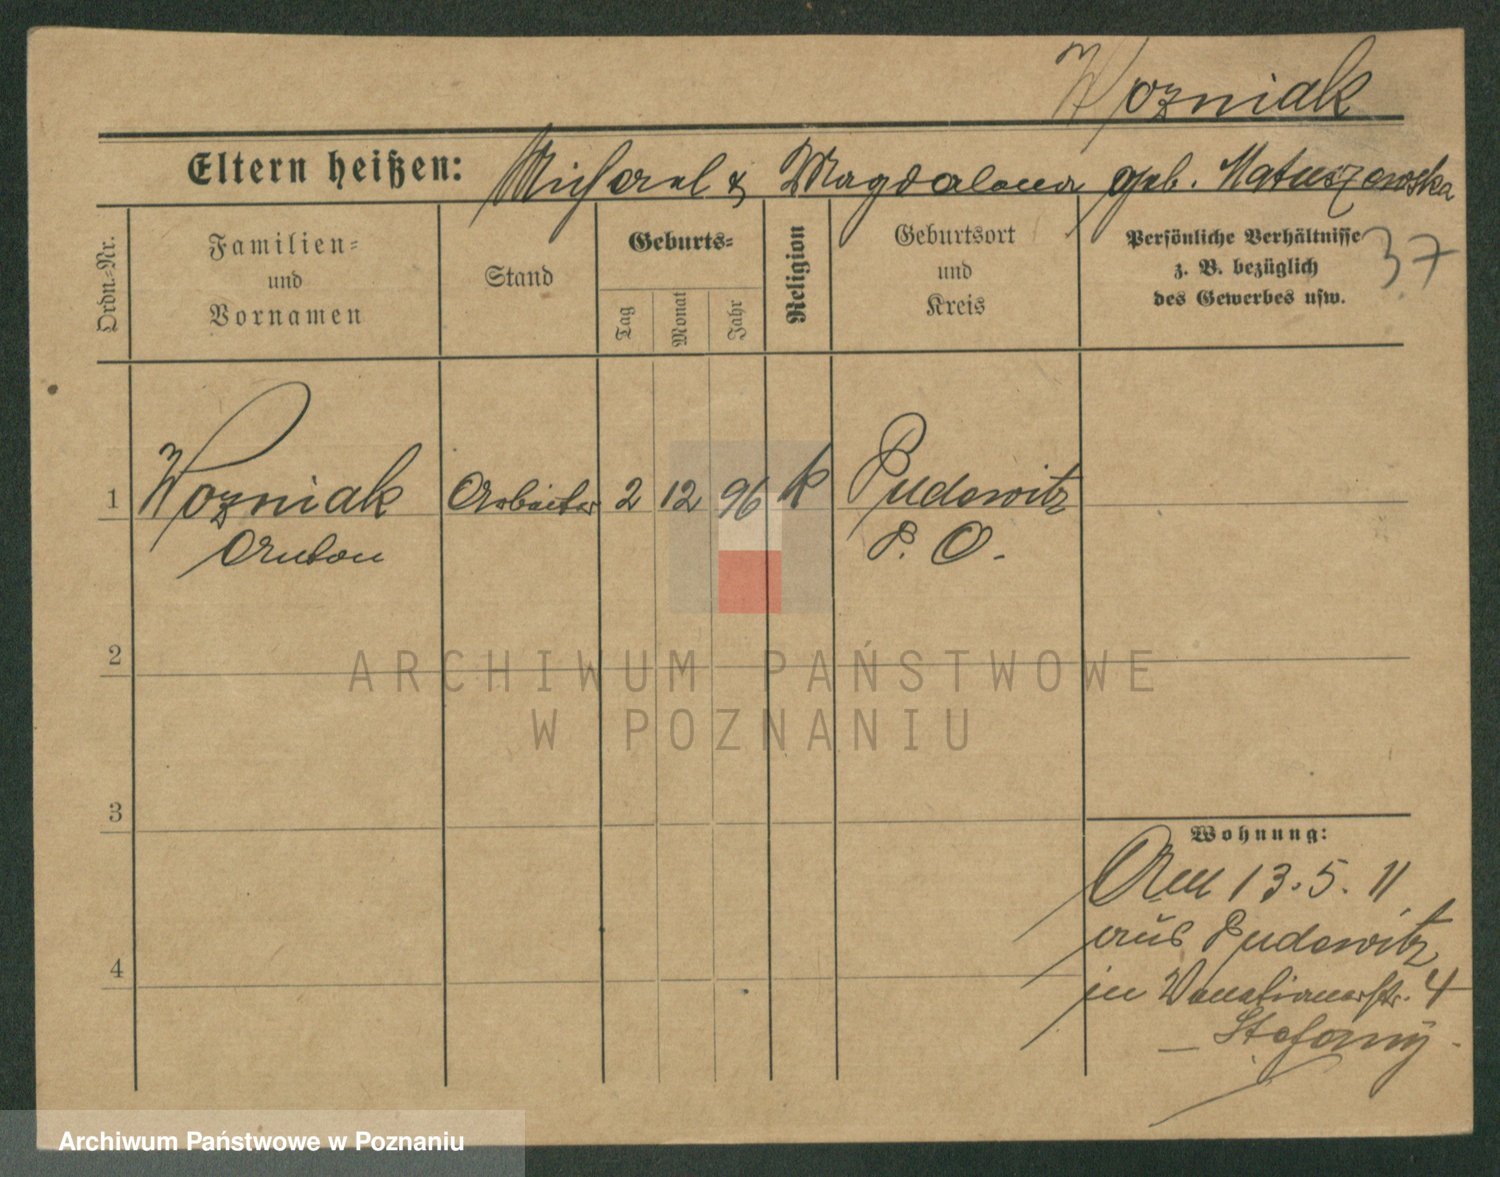 Wozniak
Eltern heißen: Michael & Magdalena geb. Matuszewska
37
Ordn.-Nr.
Familien- und Vornamen
Stand
Geburts-
Tag
Monat
Jahr
Religion
Geburtsort und Kreis
Persönliche Verhältnisse
z. B. bezüglich
des Gewerbes usw.
1 Wozniak Arbeiter 2 12 96 k Pudewitz
Anton P. O.
2
3
4
Wohnung:
Am 13.5.11
aus Pudewitz
in Venetianerstr. 4
ARCHIWUM PAŃSTWOWE
W POZNANIU
Archiwum Państwowe w Poznaniu